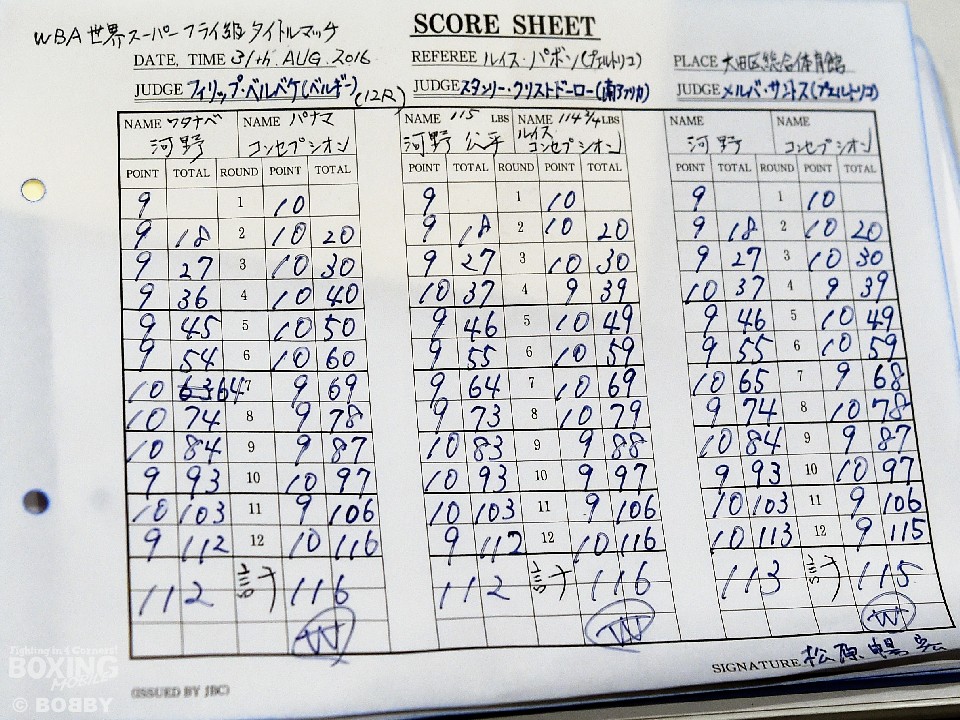 SCORE SHEET
WBA世界スーパーフライ級タイトルマッチ
DATE, TIME 31th. AUG. 2016 REFEREE ルイス・パボン(プエルトリコ) PLACE 大田区総合体育館
JUDGE フィリップ・ベルベケ(ベルギー) (12R) JUDGE スタンリー・クリストドーロー(南アフリカ) JUDGE メルバ・サントス(プエルトリコ)
NAME ワタナベ NAME パナマ NAME 115 LBS NAME 114 3/4 LBS NAME NAME
河野 コンセプシオン 河野 公平 ルイス コンセプシオン 河野 コンセプシオン
POINT TOTAL ROUND POINT TOTAL POINT TOTAL ROUND POINT TOTAL POINT TOTAL ROUND POINT TOTAL
9 1 10 9 1 10 9 1 10
9 18 2 10 20 9 18 2 10 20 9 18 2 10 20
9 27 3 10 30 9 27 3 10 30 9 27 3 10 30
9 36 4 10 40 10 37 4 9 39 10 37 4 9 39
9 45 5 10 50 9 46 5 10 49 9 46 5 10 49
9 54 6 10 60 9 55 6 10 59 9 55 6 10 59
10 63 64 7 9 69 9 64 7 10 69 10 65 7 9 68
10 74 8 9 78 9 73 8 10 79 9 74 8 10 78
10 84 9 9 87 10 83 9 9 88 10 84 9 9 87
9 93 10 10 97 10 93 10 9 97 9 93 10 10 97
10 103 11 9 106 10 103 11 9 106 10 103 11 9 106
9 112 12 10 116 9 112 12 10 116 10 113 12 9 115
112 計 116 112 計 116 113 計 115
W W W
SIGNATURE 松原
(ISSUED BY JBC)
Fighting in 4 Corners!
BOXING
MOBILE
© BOBBY